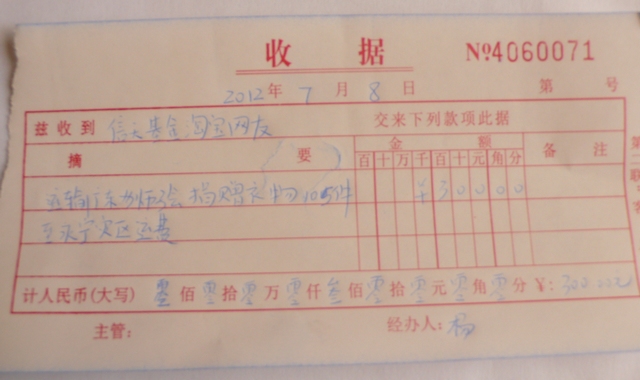 收 据 №4060071
2012年 7 月 8 日 第 号
兹收到 基金 网友 交来下列款项此据
摘 要 金 额 备 注
百十万千百十元角分
运输 捐赠衣物105件 ¥30000
灾区运费
计人民币(大写) 零佰零拾零万零仟叁佰零拾零元零角零分 ¥:300.00元
主管: 经办人:杨